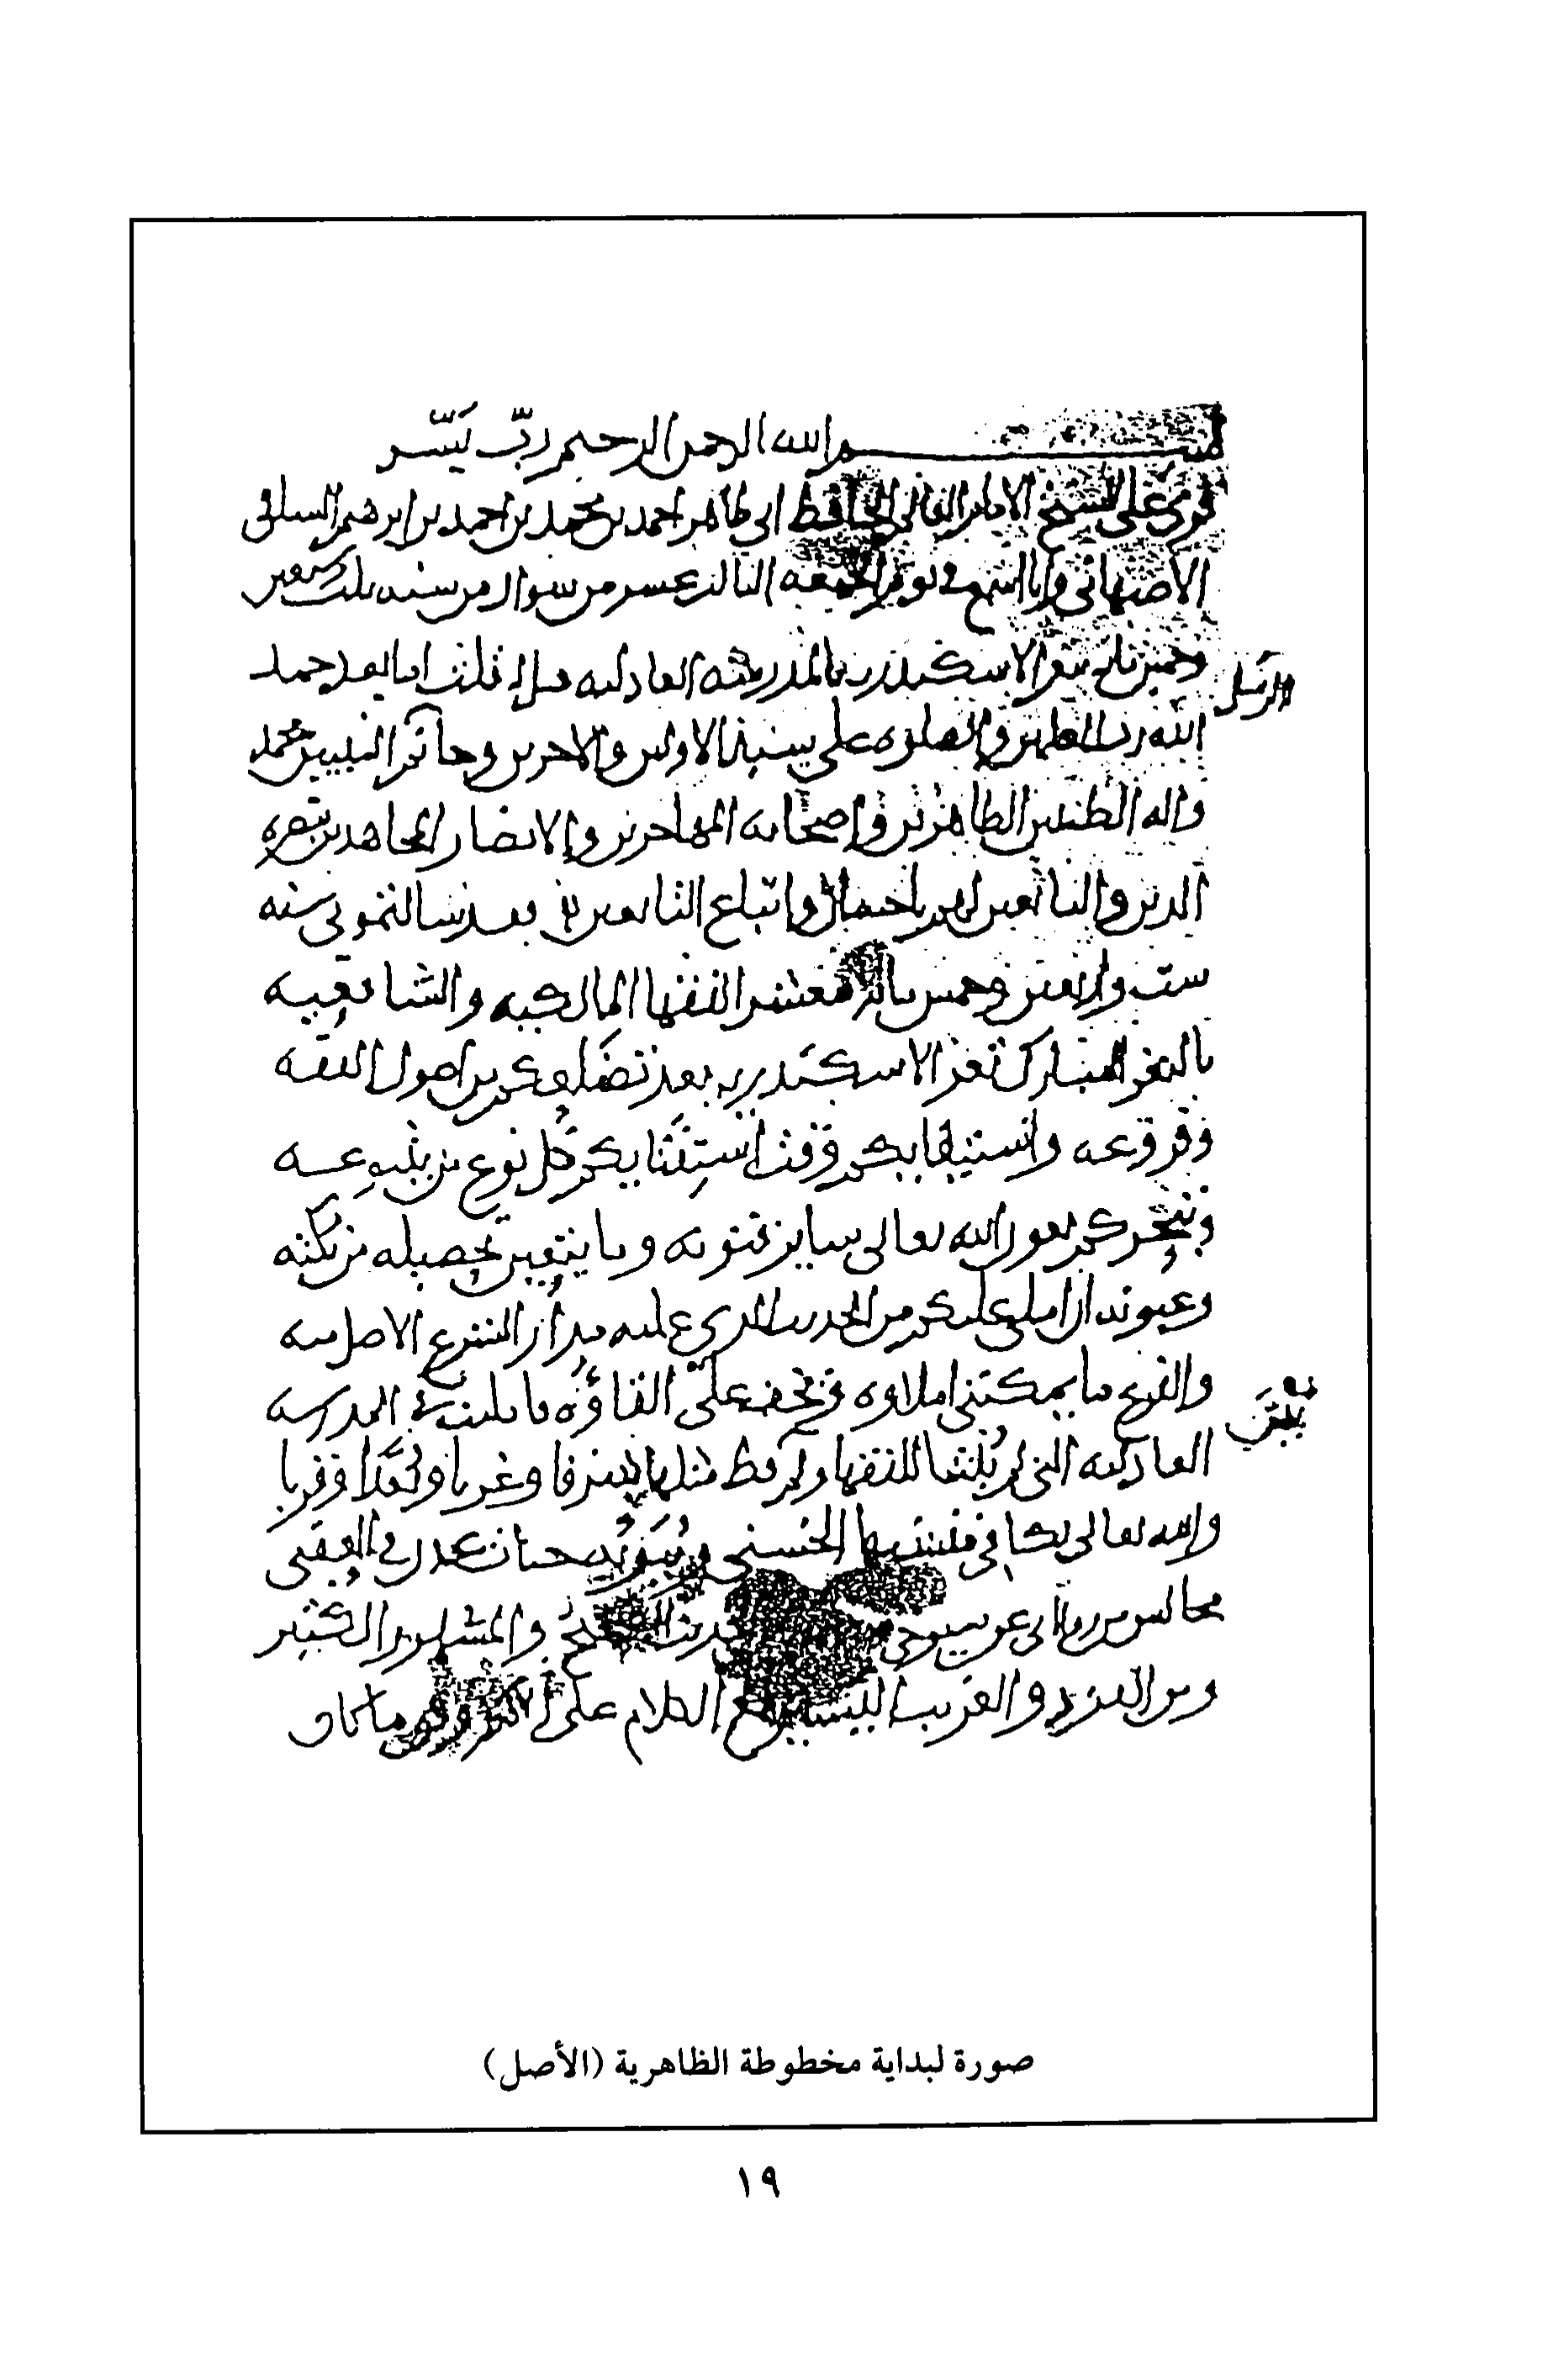 بسم الله الرحمن الرحيم ربّ يسّر
قرئ على الشيخ الامام العالم الحافظ ابي طاهر احمد بن محمد بن احمد بن ابرهيم السلفي
الاصبهاني وانا اسمع في يوم الجمعه الثالث عشر من شوال من سنه ثلث وسبعين
وخمس مايه بثغر الاسكندريه بالمدرسه العادليه قال قلت اما بعد حمد
الله رب العالمين والصلوه على سيد الاولين والاخرين وخاتم النبيين محمد
واله الطيبين الطاهرين واصحابه المهاجرين والانصار المجاهدين بنصره
الدين والتابعين لهم باحسان واتباع التابعين فقد سالتموني سنه
ست واربعين وخمس مايه معشر الفقها المالكيه والشافعيه
بالثغر المبارك ثغر الاسكندريه بعد تضلعكم من اصول الفقه
وفروعه واستيفايكم وقت استفتايكم كل نوع من ينبوعه
وتبحركم بعون الله تعالى ساير فنونه وما يتعين تحصيله من نكته
وعيونه ان املي عليكم من الحديث الذي عليه مدار الشرع الاصل منه
والفرع ما يمكنني املاوه ويخف علي القاؤه فامليت في المدرسه
العادليه التي لم يُنشا للفقها ولم قط مثلها شرقا وغربا وبُعدا وقربا
والله تعالى يكافي منشيها الحسنى جنات عدن في العقبى
مجالس من رواياتي عن شيوخي الحديث الصحيح والمشاهير الكثير
ومن العزيز والغريب اليسير مع الكلام على ما كان
صورة لبداية مخطوطة الظاهرية (الأصل)
١٩